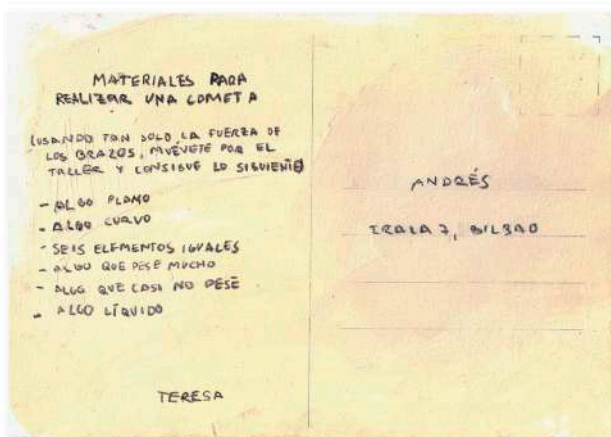 MATERIALES PARA
REALIZAR UNA COMETA
(USANDO TAN SOLO LA FUERZA DE
LOS BRAZOS, MUÉVETE POR EL
TALLER Y CONSIGUE LO SIGUIENTE)
- ALGO PLANO
- ALGO CURVO
- SEIS ELEMENTOS IGUALES
- ALGO QUE PESE MUCHO
- ALGO QUE CASI NO PESE
- ALGO LÍQUIDO
TERESA
ANDRÉS
IRALA 7, BILBAO